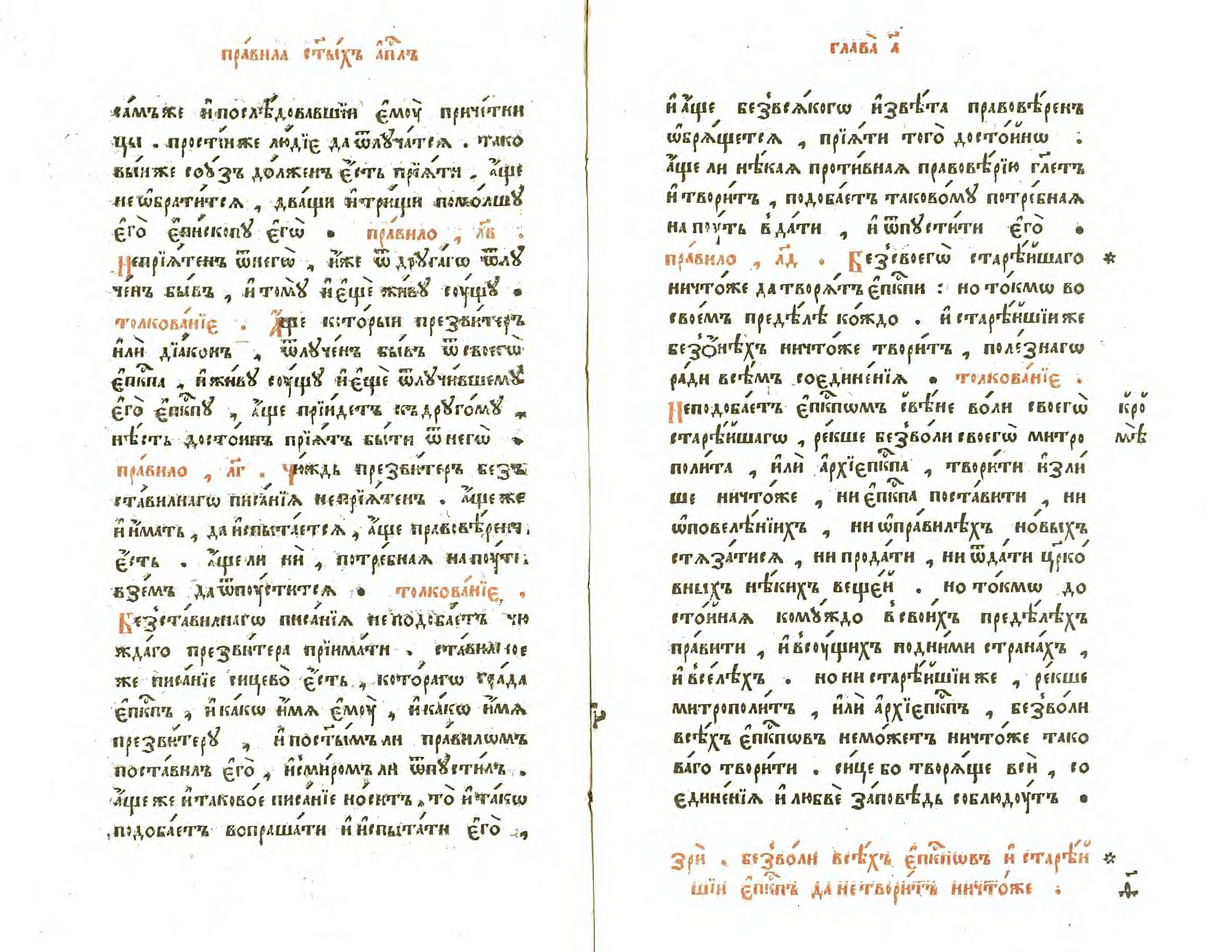 пра́вила ст҃ы́хъ а҆п҃лъ
са́мъже и҆послѣ́довавшїи є҆моу̀ приче́тни
цы . простїиже лю́дїе да ѿлуча́тся . тако
выиже сою́зъ до́лженъ є҆́сть прїя́ти , а҆́ще
не ѡ҆брати́тся , два́щи и҆три́щи помо́лшу
є҆го̀ є҆пи́скопу є҆гѡ̀ . пра́вило , л҃в .
Непрїя́тенъ ѿ негѡ̀ , и҆́же ѿ друга́гѡ ѿлу
че́нъ бы́въ , и҆тому̀ и҆є҆щѐ жи́ву су́щу .
толкова́нїе . А҆́ще кото́рыи презви́теръ
и҆лѝ дїа́конъ , ѿлуче́нъ бы́въ ѿ своегѡ̀
є҆пк҃па , и҆жи́ву су́щу и҆є҆щѐ ѿлучи́вшему
є҆го̀ є҆пк҃пу , а҆́ще прїи́детъ къ друго́му ,
нѣ́сть досто́инъ прїя́тъ бы́ти ѿ негѡ̀ .
пра́вило , л҃г . Чю́ждь презви́теръ безъ
ста́вилнагѡ писа́нїя непрїя́тенъ . а҆́ще же
и҆ и҆́мать , да и҆спыта́ется , а҆́ще правовѣ́ренъ
є҆́сть . а҆́ще ли нѝ , потре́бная на поу́ть
взе́мъ да ѿпу́стится . толкова́нїе .
Безста́вилнагѡ писа́нїя не подоба́етъ чю
жда́го презви́тера прїима́ти . ста́вилное
же писа́нїе сицево̀ є҆́сть , кото́рагѡ гра́да
є҆пк҃пъ , и҆ ка́кѡ и҆́мя є҆моу̀ , и҆ ка́кѡ и҆́мя
презви́теру , и҆ по ст҃ы́мъ ли пра́вилѡмъ
поста́вилъ є҆го̀ , и҆ с ми́ромъ ли ѿпусти́лъ .
а҆́ще же и҆ таково́е писа́нїе но́ситъ , то̀ и҆ та́кѡ
подоба́етъ вопраша́ти и҆ и҆спыта́ти є҆го̀ ,
глава̀ а҃
и҆ а҆́ще безвся́когѡ и҆звѣ́та правовѣ́ренъ
ѡ҆бря́щется , прїя́ти того̀ досто́йнѡ :
а҆́ще ли нѣ́кая проти́вная правовѣ́рїю гл҃етъ
и҆ твори́тъ , подоба́етъ таково́му потре́бная
на поу́ть вда́ти , и҆ ѿпусти́ти є҆го̀ .
пра́вило , л҃д . Безсвоегѡ̀ старѣ́йшаго *
ничто́же да творя́тъ є҆пк҃пи : но то́кмѡ во
свое́мъ предѣ́лѣ ко́ждо . и҆ старѣ́йшїи же
без ѻ҆нѣ́хъ ничто́же твори́тъ , поле́знагѡ
ра́ди всѣ́мъ соедине́нїя . толкова́нїе .
Неподоба́етъ є҆пк҃пѡмъ свѣ́не во́ли своегѡ̀ кро
старѣ́йшагѡ , ре́кше безво́ли своегѡ̀ митро мѣ
поли́та , и҆лѝ а҆рхїепк҃па , твори́ти и҆зли
ше ничто́же , ни є҆пк҃па поста́вити , ни
ѡ҆ повелѣ́нїихъ , ни ѡ҆ пра́вилѣхъ но́выхъ
стяза́тися , ни прода́ти , ни ѿда́ти цр҃ко
вныхъ нѣ́кихъ веще́й . но то́кмѡ до
сто́йная кому́ждо в свои́хъ предѣ́лѣхъ
пра́вити , и҆ в су́щихъ под ни́ми страна́хъ ,
и҆ в се́лѣхъ . но ни старѣ́йшїи же , ре́кше
митрополи́тъ , и҆лѝ а҆рхїепк҃пъ , безво́ли
всѣ́хъ є҆пк҃пѡвъ немо́жетъ ничто́же тако
ва́го твори́ти . си́це бо творя́ще всѝ , со
единє́нїя и҆ любвѐ за́повѣдь соблюдоу́тъ .
зрѝ . безво́ли всѣ́хъ є҆пк҃пѡвъ и҆ старѣ́й *
шїи є҆пк҃пъ да не твори́тъ ничто́же :